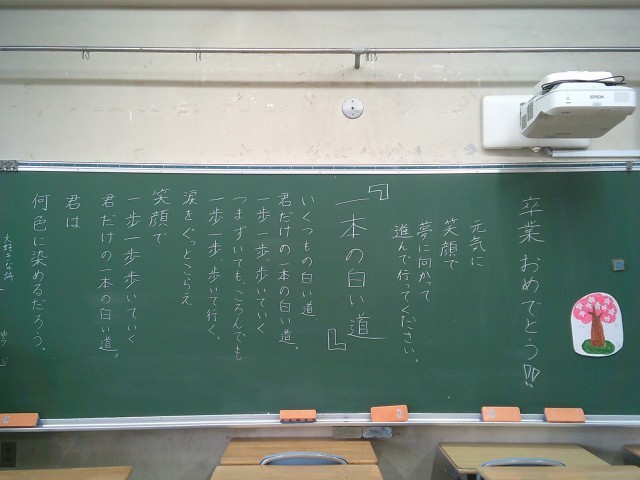 卒業おめでとう!!
元気に
笑顔で
夢に向かって
進んで行ってください。
『一本の白い道』
いくつもの白い道
君だけの一本の白い道。
一歩一歩、歩いていく
つまずいても、ころんでも
一歩一歩、歩いて行く。
涙をぐっとこらえ
笑顔で
一歩一歩歩いていく
君だけの一本の白い道。
君は
何色に染めるだろう。
大好きな
EPSON